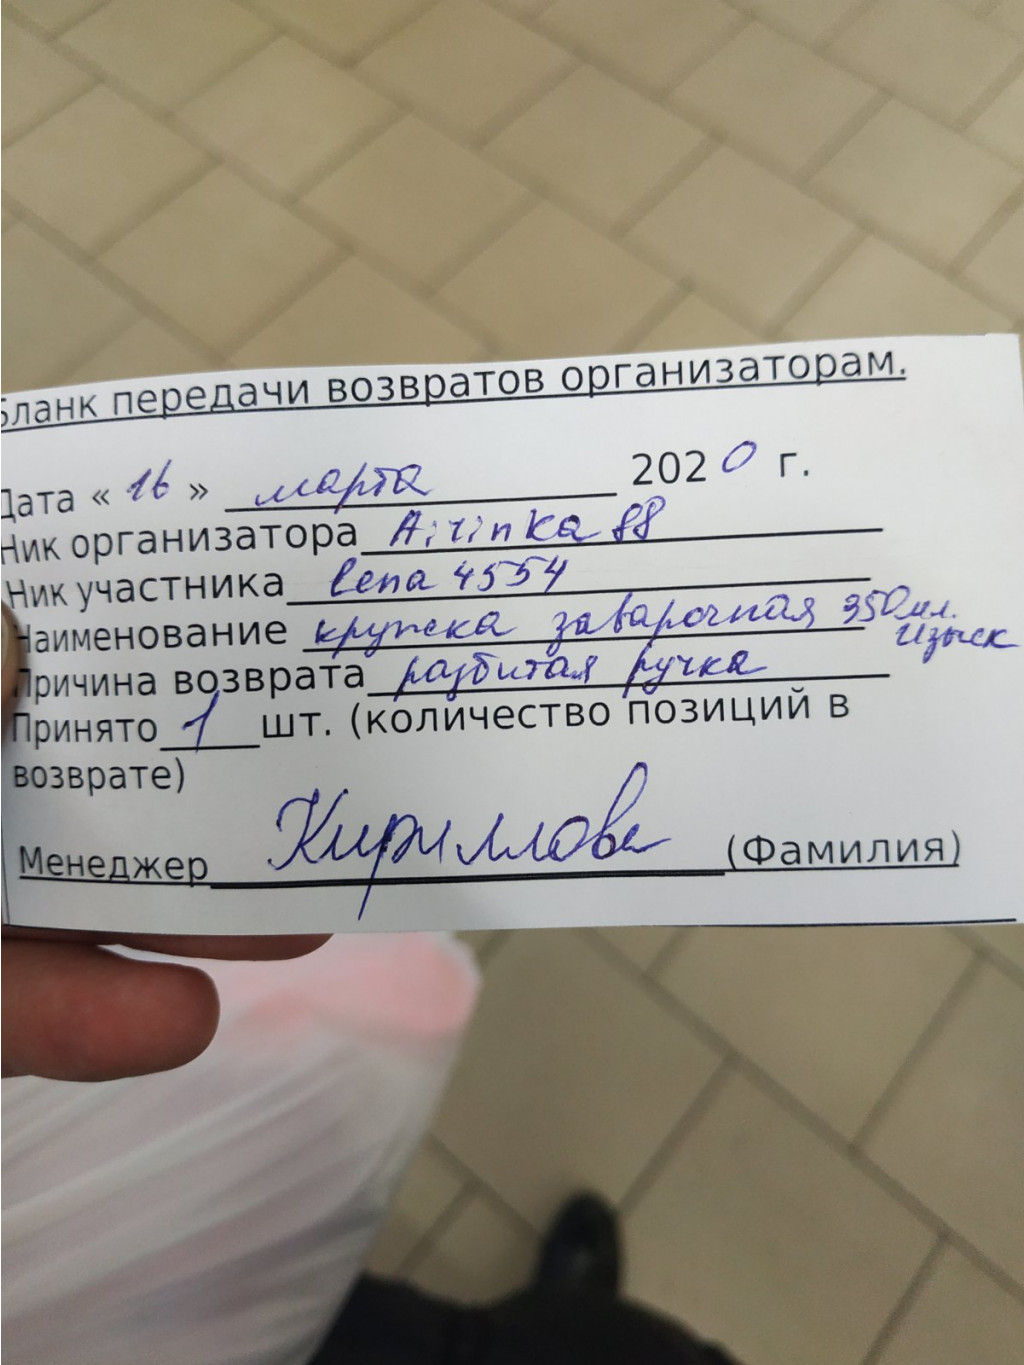 Бланк передачи возвратов организаторам.
Дата « 16 » марта 2020 г.
Ник организатора Airinka 88
Ник участника Lena 4554
Наименование кружка заварочная 350 мл. Изыск
Причина возврата разбитая ручка
Принято 1 шт. (количество позиций в
возврате)
Менеджер Кириллова (Фамилия)